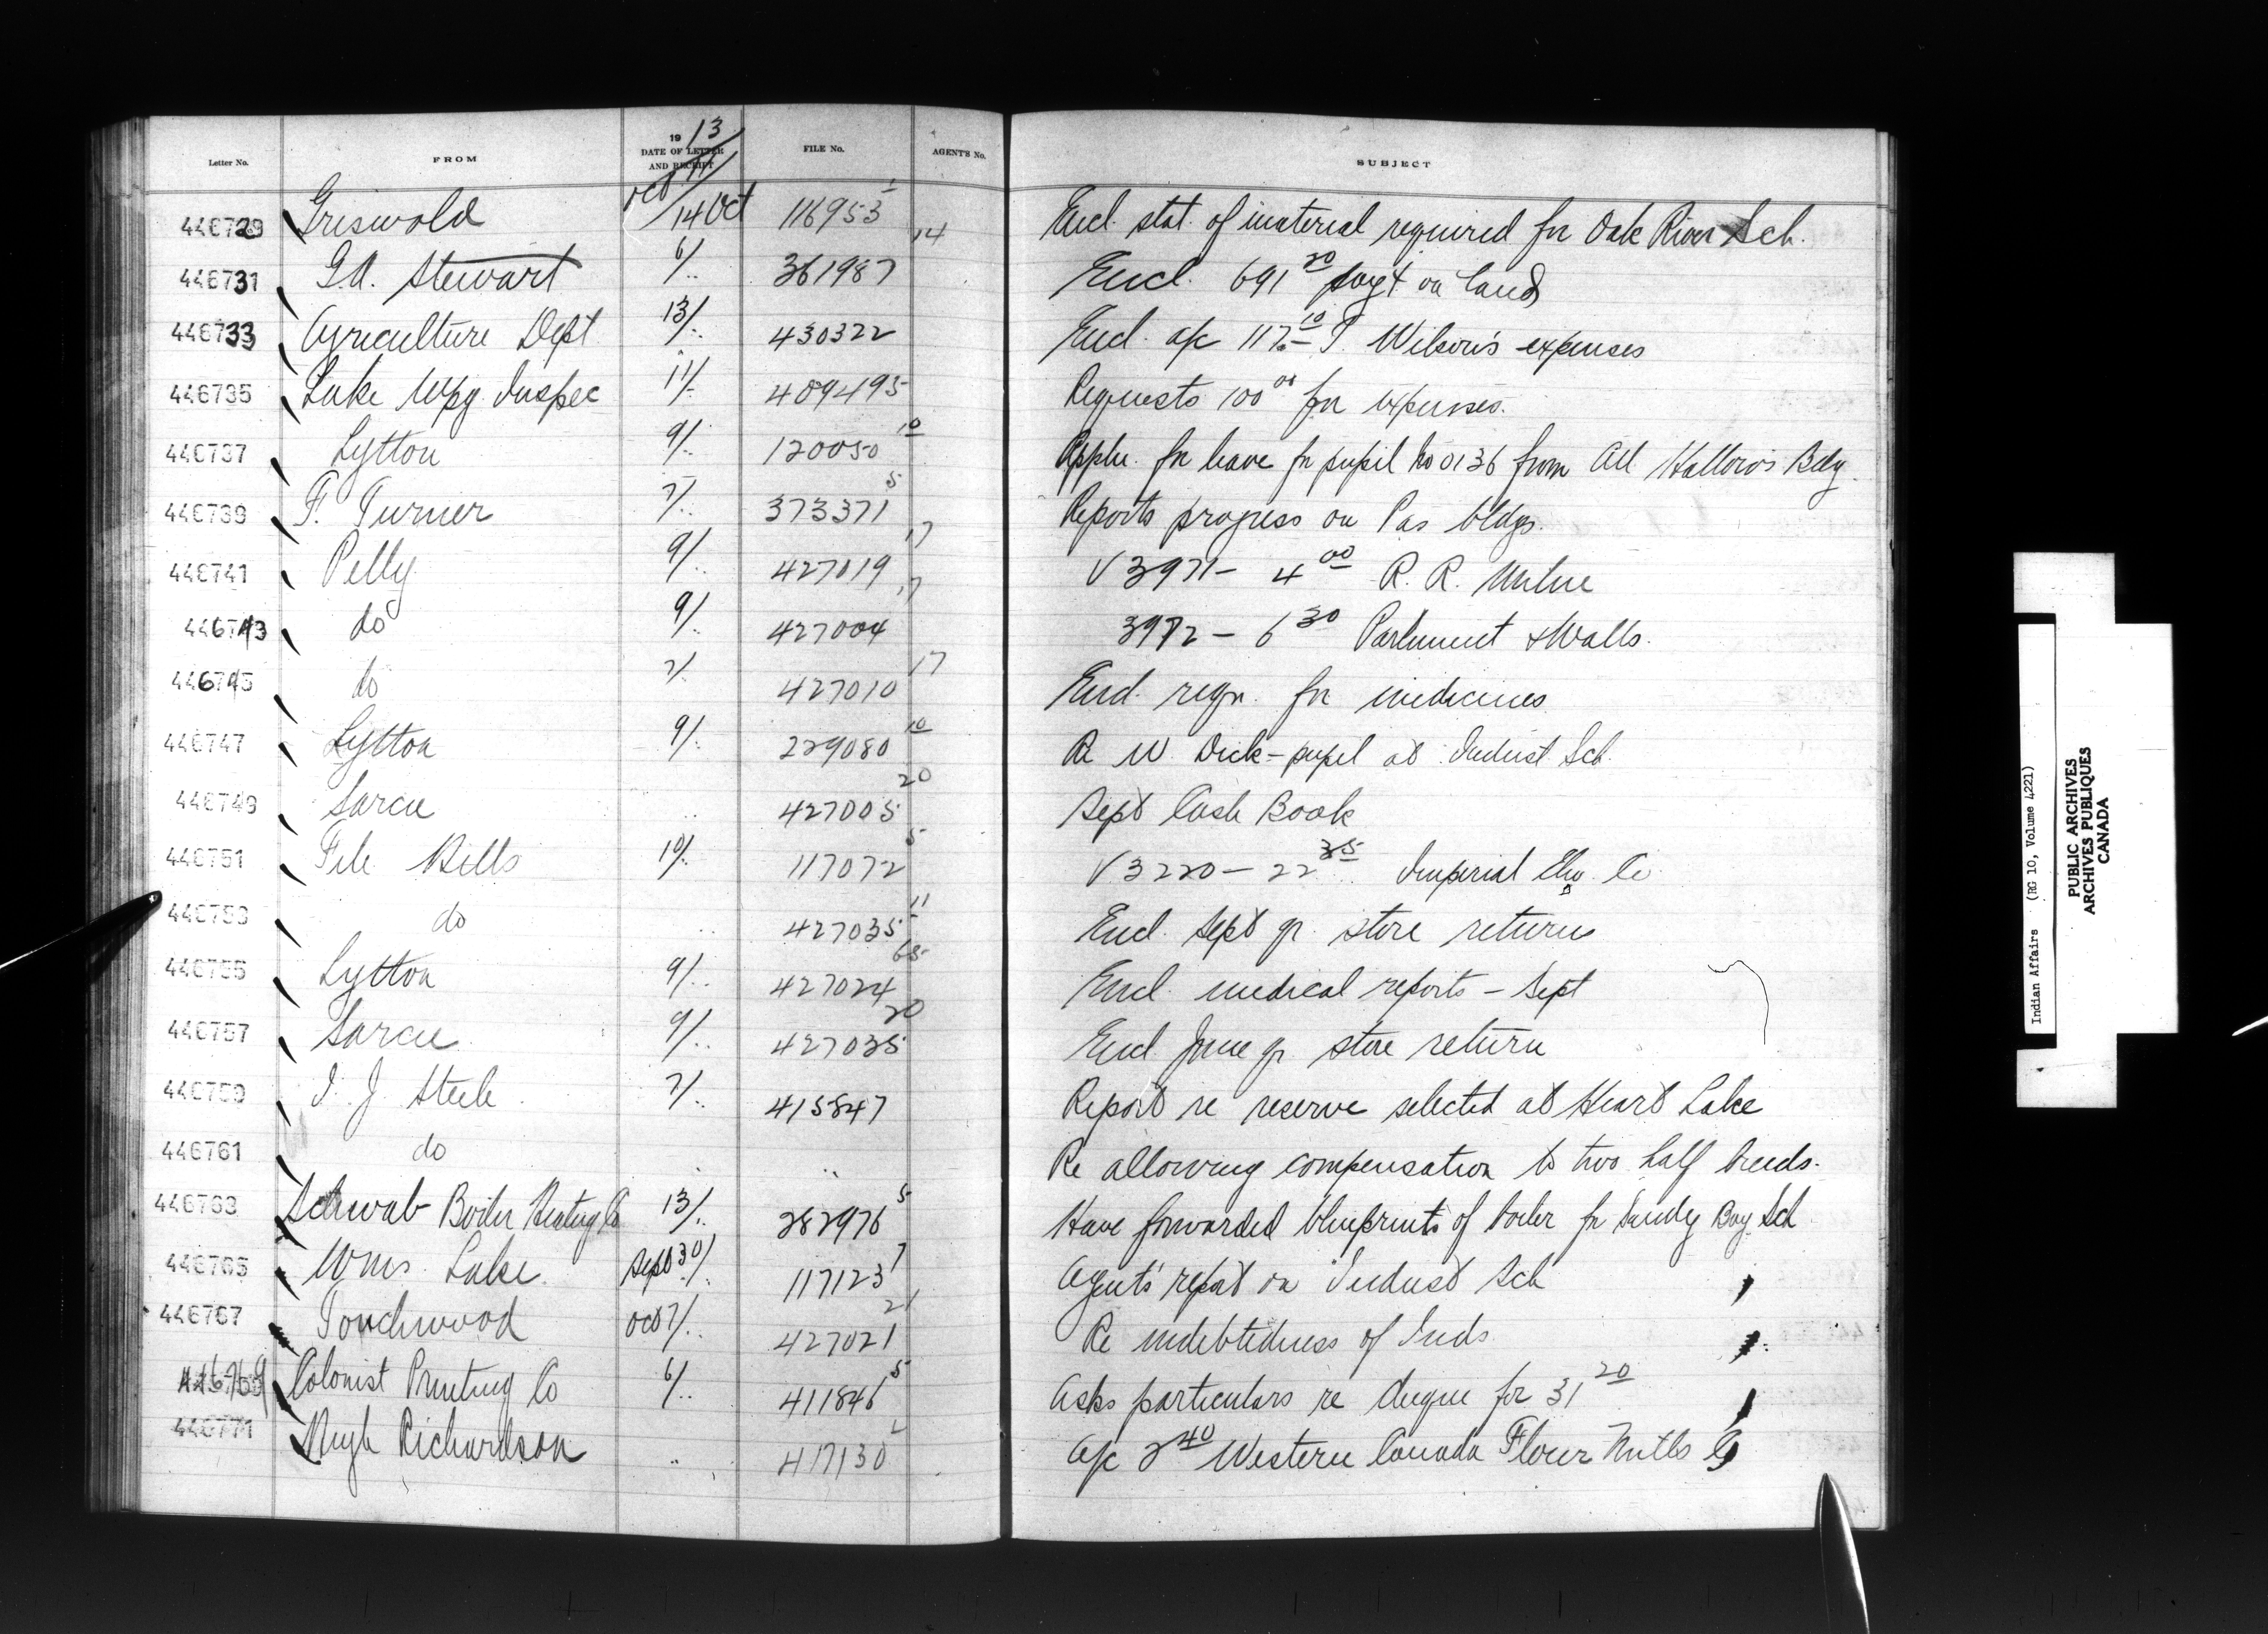 Letter No. FROM 1913 DATE OF LETTER AND RECEIPT FILE No. AGENT'S No. SUBJECT
446729 Griswold Oct 11/14 Oct 116953 1 14 Encl. stat. of material required for Oak River Sch.
446731 G.A. Stewart 6/.. 361987 Encl. 691 20 payt on land
446733 Agriculture Dept 13/.. 430322 Encl. a/c 117 10 T. Wilson's expenses
446735 Lake Wpg. Inspec 11/.. 409495 Requests 100 00 for expenses.
446737 Lytton 9/.. 120050 10 Appln. for leave for pupil No 0136 from All Hallows Bdg.
446739 F. Turner 7/.. 373371 5 Reports progress on Pas bldgs.
446741 Pelly 9/.. 427019 17 V 3971 - 4 00 R. R. Milne
446743 do 9/.. 427004 17 3972 - 6 30 Parliment & Walls.
446745 do 7/.. 427010 17 Encl. reqn. for medicines
446747 Lytton 9/.. 229080 10 Re W. Dick - pupil at Indust Sch.
446749 Sarcee .. 427005 20 Sept Cash Book
446751 File Hills 10/.. 117072 5 V 3220 - 22 35 Imperial Elev. Co
446753 do .. 427035 11 Encl. Sept qr. store return
446755 Lytton 9/.. 427024 65 Encl. medical reports - Sept
446757 Sarcee 9/.. 427035 20 Encl June qr. store return
446759 I. J. Steele 7/.. 415847 Report re reserve selected at Heart Lake
446761 do .. .. Re allowing compensation to two half breeds.
446763 Schwab Boiler Heating Co 13/.. 282976 5 Have forwarded blueprints of boiler for Sandy Bay Sch
446765 Wms. Lake. Sept 30/.. 117123 7 Agent's report on Indust Sch
446767 Touchwood Oct 7/.. 427021 21 Re indebtedness of Inds.
446769 Colonist Printing Co 6/.. 411846 5 Asks particulars re cheque for 31 20
446771 Hugh Richardson .. 417130 2 A/c 2 40 Western Canada Flour Mills Co
Indian Affairs (RG 10, Volume 4221)
PUBLIC ARCHIVES
ARCHIVES PUBLIQUES
CANADA